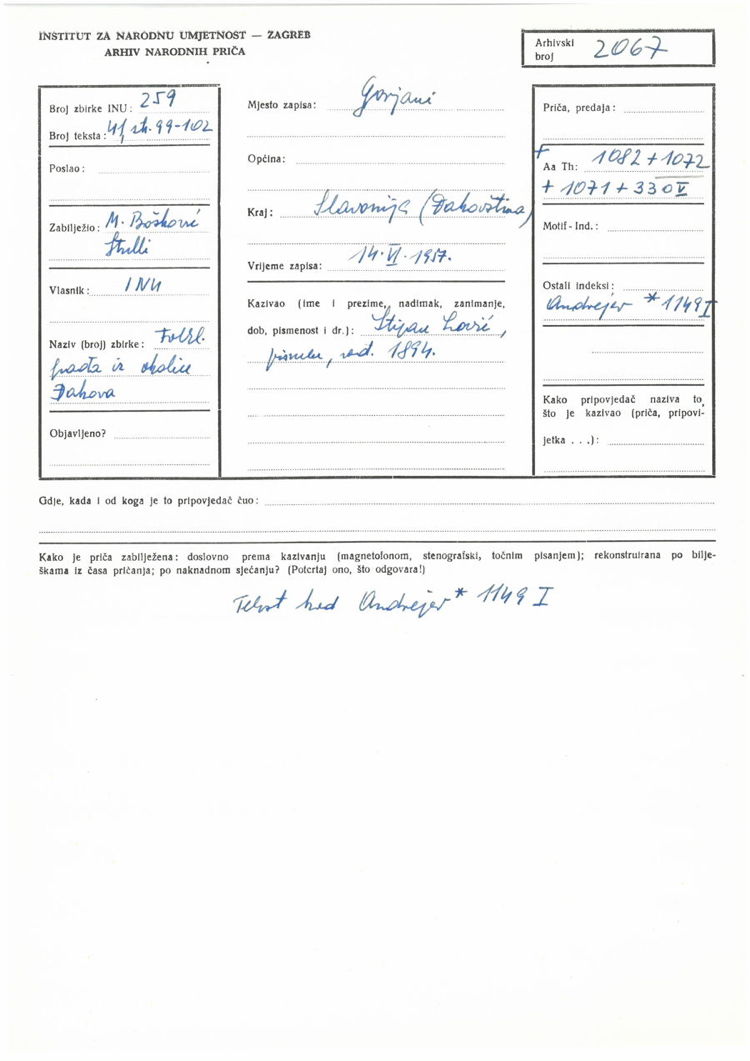 INSTITUT ZA NARODNU UMJETNOST — ZAGREB
ARHIV NARODNIH PRIČA
Arhivski broj 2067
Broj zbirke INU: 259
Broj teksta: 41 str. 99-102
Poslao:
Zabilježio: M. Bošković
Stulli
Vlasnik: INU
Naziv (broj) zbirke: Folkl.
građa iz okolice
Đakova
Objavljeno?
Mjesto zapisa: Gorjani
Općina:
Kraj: Slavonija (Đakovština)
Vrijeme zapisa: 14. VI. 1957.
Kazivao (ime i prezime, nadimak, zanimanje,
dob, pismenost i dr.): Stipan
pismen, rođ. 1894.
Priča, predaja:
+
Aa Th: 1082 + 1072
+ 1071 + 330 V
Motif - Ind.:
Ostali indeksi:
Andrejev * 1149 I
Kako pripovjedač naziva to,
što je kazivao (priča, pripovi-
jetka . . .):
Gdje, kada i od koga je to pripovjedač čuo:
Kako je priča zabilježena: doslovno prema kazivanju (magnetofonom, stenografski, točnim pisanjem); rekonstruirana po bilje-
škama iz časa pričanja; po naknadnom sjećanju? (Potcrtaj ono, što odgovara!)
Tekst kod Andrejev * 1149 I